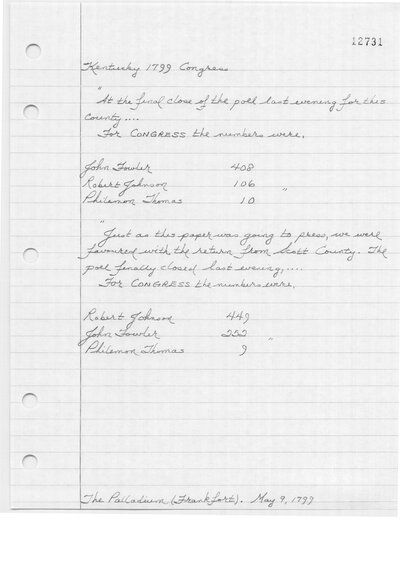 12731
Kentucky 1799 Congress
"
At the final close of the poll last evening for this
County....
For CONGRESS the numbers were,
John Fowler 408
Robert Johnson 106
Philemon Thomas 10 "
"
Just as this paper was going to press, we were
favoured with the return from Scott County. The
poll finally closed last evening,....
For CONGRESS the numbers were,
Robert Johnson 449
John Fowler 252
Philemon Thomas 9 "
The Palladium (Frankfort). May 9, 1799